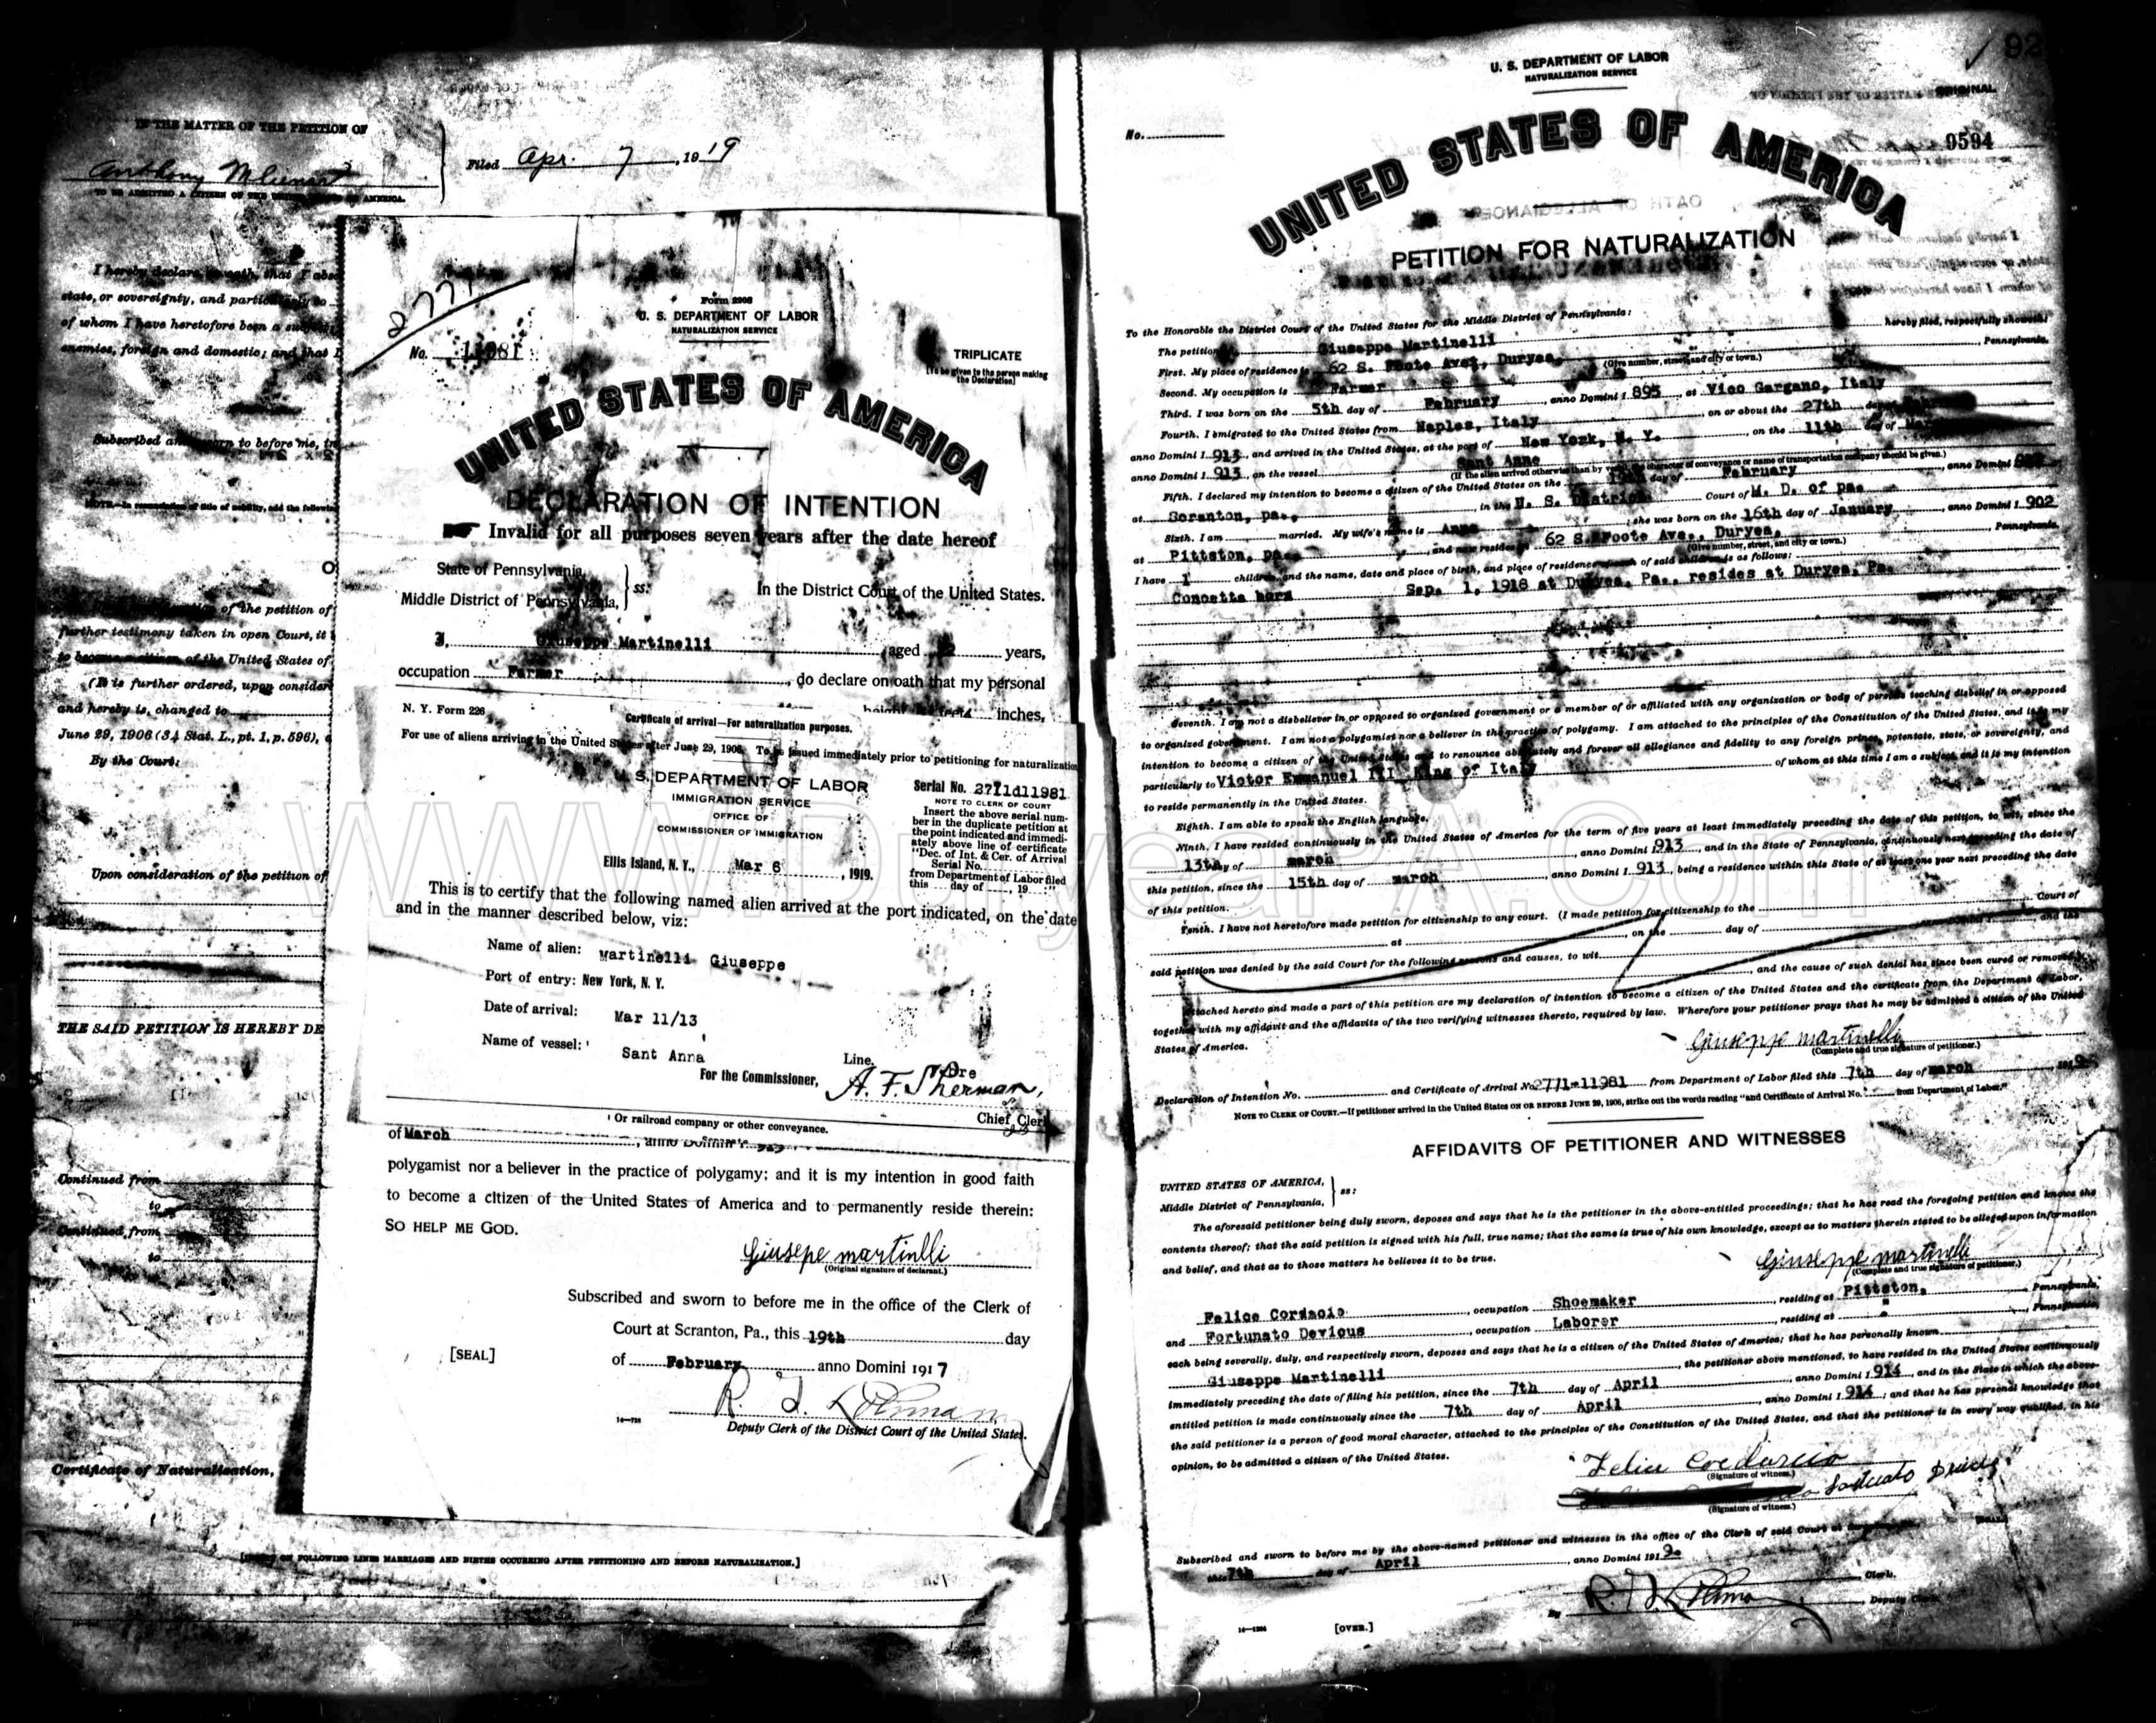 IN THE MATTER OF THE PETITION OF
Anthony
TO BE ADMITTED A CITIZEN OF THE UNITED STATES OF AMERICA.
Filed Apr. 7, 1919
I hereby declare, on oath, that I abs
state, or sovereignty, and particularly to
of whom I have heretofore been a subject
enemies, foreign and domestic; and that I
Subscribed and sworn to before me, in
of the petition of
further testimony taken in open Court, it
to become a citizen of the United States of
(It is further ordered, upon consider
and hereby is, changed to
June 29, 1906 (34 Stat. L., pt. 1, p. 596),
By the Court:
Upon consideration of the petition of
THE SAID PETITION IS HEREBY DE
Continued from
to
Continued from
to
Certificate of Naturalization,
[ENTER ON FOLLOWING LINES MARRIAGES AND BIRTHS OCCURRING AFTER PETITIONING AND BEFORE NATURALIZATION.]
Form 2203
U. S. DEPARTMENT OF LABOR
NATURALIZATION SERVICE
No. 11981
TRIPLICATE
[To be given to the person making the Declaration]
UNITED STATES OF AMERICA
DECLARATION OF INTENTION
Invalid for all purposes seven years after the date hereof
State of Pennsylvania,
Middle District of Pennsylvania, } ss:
In the District Court of the United States.
I, Giuseppe Martinelli, aged years,
occupation Farmer, do declare on oath that my personal
inches,
N. Y. Form 226
Certificate of arrival—For naturalization purposes.
For use of aliens arriving in the United States after June 29, 1906. To be issued immediately prior to petitioning for naturalization
U. S. DEPARTMENT OF LABOR
IMMIGRATION SERVICE
OFFICE OF
COMMISSIONER OF IMMIGRATION
Serial No. 2771d11981
NOTE TO CLERK OF COURT
Insert the above serial num-
ber in the duplicate petition at
the point indicated and immedi-
ately above line of certificate
"Dec. of Int. & Cer. of Arrival
Serial No.
from Department of Labor filed
this day of , 19 :"
Ellis Island, N. Y., Mar 6, 1919.
This is to certify that the following named alien arrived at the port indicated, on the date
and in the manner described below, viz:
Name of alien: Martinelli Giuseppe
Port of entry: New York, N. Y.
Date of arrival: Mar 11/13
Name of vessel: Sant Anna
Line,
For the Commissioner,
A. F. Sherman,
Chief Clerk
Or railroad company or other conveyance.
of March, anno Domini
polygamist nor a believer in the practice of polygamy; and it is my intention in good faith
to become a citizen of the United States of America and to permanently reside therein:
SO HELP ME GOD.
Giusepe martinlli
(Original signature of declarant.)
Subscribed and sworn to before me in the office of the Clerk of
Court at Scranton, Pa., this 19th day
[SEAL]
of February anno Domini 1917
Deputy Clerk of the District Court of the United States.
92
U. S. DEPARTMENT OF LABOR
NATURALIZATION SERVICE
ORIGINAL
No.
9594
UNITED STATES OF AMERICA
PETITION FOR NATURALIZATION
To the Honorable the District Court of the United States for the Middle District of Pennsylvania:
The petition of Giuseppe Martinelli hereby filed, respectfully showeth:
First. My place of residence is 62 S. Foote Ave., Duryea, Pennsylvania.
(Give number, street, and city or town.)
Second. My occupation is Farmer
Third. I was born on the 5th day of February, anno Domini 1 895, at Vico Gargano, Italy
Fourth. I emigrated to the United States from Naples, Italy on or about the 27th day of
anno Domini 1 913, and arrived in the United States, at the port of New York, N. Y., on the 11th day of Mar
anno Domini 1 913, on the vessel Sant Anne
(If the alien arrived otherwise than by vessel, the character of conveyance or name of transportation company should be given.)
Fifth. I declared my intention to become a citizen of the United States on the 19th day of February, anno Domini
at Scranton, pa., in the U. S. District Court of M. D. of pa.
Sixth. I am married. My wife's name is Anna, she was born on the 16th day of January, anno Domini 1 902
at Pittston, pa., and now resides at 62 S. Foote Ave., Duryea, Pennsylvania.
(Give number, street, and city or town.)
I have 1 children, and the name, date and place of birth, and place of residence of each of said children is as follows:
Concetta born Sep. 1, 1918 at Duryea, Pa., resides at Duryea, Pa.
Seventh. I am not a disbeliever in or opposed to organized government or a member of or affiliated with any organization or body of persons teaching disbelief in or opposed
to organized government. I am not a polygamist nor a believer in the practice of polygamy. I am attached to the principles of the Constitution of the United States, and it is my
intention to become a citizen of the United States and to renounce absolutely and forever all allegiance and fidelity to any foreign prince, potentate, state, or sovereignty, and
particularly to Victor Emmanuel III King of Italy of whom at this time I am a subject, and it is my intention
to reside permanently in the United States.
Eighth. I am able to speak the English language.
Ninth. I have resided continuously in the United States of America for the term of five years at least immediately preceding the date of this petition, to wit, since the
13th day of march, anno Domini 1 913, and in the State of Pennsylvania, continuously next preceding the date of
this petition, since the 15th day of march, anno Domini 1 913, being a residence within this State of at least one year next preceding the date
of this petition.
Tenth. I have not heretofore made petition for citizenship to any court. (I made petition for citizenship to the Court of
at , on the day of , and the
said petition was denied by the said Court for the following reasons and causes, to wit
, and the cause of such denial has since been cured or removed.)
Attached hereto and made a part of this petition are my declaration of intention to become a citizen of the United States and the certificate from the Department of Labor,
together with my affidavit and the affidavits of the two verifying witnesses thereto, required by law. Wherefore your petitioner prays that he may be admitted a citizen of the United
States of America.
Giuseppe martinelli
(Complete and true signature of petitioner.)
Declaration of Intention No. and Certificate of Arrival No. 2771-11981 from Department of Labor filed this 7th day of March
NOTE TO CLERK OF COURT.—If petitioner arrived in the United States ON OR BEFORE JUNE 29, 1906, strike out the words reading "and Certificate of Arrival No. from Department of Labor."
AFFIDAVITS OF PETITIONER AND WITNESSES
UNITED STATES OF AMERICA,
Middle District of Pennsylvania, } ss:
The aforesaid petitioner being duly sworn, deposes and says that he is the petitioner in the above-entitled proceedings; that he has read the foregoing petition and knows the
contents thereof; that the said petition is signed with his full, true name; that the same is true of his own knowledge, except as to matters therein stated to be alleged upon information
and belief, and that as to those matters he believes it to be true.
Giuseppe martinelli
(Complete and true signature of petitioner.)
Felice Cordacio, occupation Shoemaker, residing at Pittston, Pennsylvania,
and Fortunato Devious, occupation Laborer, residing at " , Pennsylvania,
each being severally, duly, and respectively sworn, deposes and says that he is a citizen of the United States of America; that he has personally known
Giuseppe Martinelli, the petitioner above mentioned, to have resided in the United States continuously
immediately preceding the date of filing his petition, since the 7th day of April, anno Domini 1 914, and in the State in which the above-
entitled petition is made continuously since the 7th day of April, anno Domini 1 914; and that he has personal knowledge that
the said petitioner is a person of good moral character, attached to the principles of the Constitution of the United States, and that the petitioner is in every way qualified, in his
opinion, to be admitted a citizen of the United States.
(Signature of witness.)
(Signature of witness.)
Subscribed and sworn to before me by the above-named petitioner and witnesses in the office of the Clerk of said Court at
this 7th day of April, anno Domini 1919.
Clerk.
By Deputy Clerk.
[OVER.]
www.DuryeaPA.Com